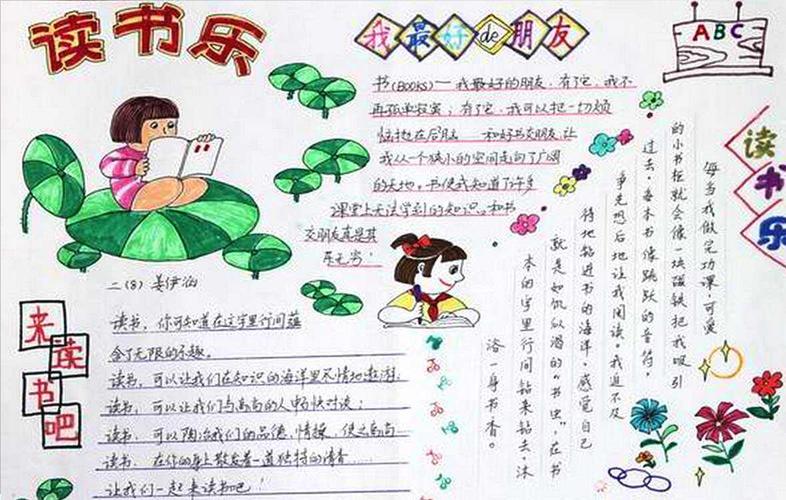 读书乐
我最好de朋友
ABC
书(BOOKS)——我最好的朋友，有了它，我不
再孤单寂寞；有了它，我可以把一切烦
恼抛在后脑 和好书交朋友，让
我从一个狭小的空间走向了广阔
的天地。书使我知道了许多
课堂上无法学到的知识。和书
交朋友真是其
乐无穷！
读书乐
每当我做完功课，可爱
的小书柜就会像一块磁铁把我吸引
过去，每本书像跳跃的音符，
争先恐后地让我阅读。我迫不及
待地钻进书的海洋，感觉自己
就是如饥似渴的“书虫”，在书
本的字里行间钻来钻去，沐
浴一身书香。
二(8) 姜伊
来读书吧
读书，你可知道在这字里行间蕴
含了无限的乐趣。
读书，可以让我们在知识的海洋里尽情地遨游，
读书，可以让我们与高尚的人畅快对谈；
读书，可以陶冶我们的品德，情操，使之高尚
读书，在你的身上散发着一道独特的清香……
让我们一起来读书吧！